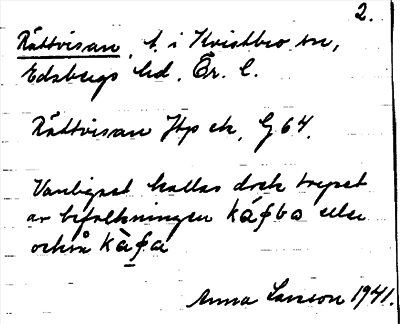 2.
Rättvisan, t. i Kvistbro sn,
Edsbergs hd, Ör. l.
Rättvisan Jtp ek, G 64.
Vanligast kallas dock torpet
av befolkningen káfbo eller
också kàfa
Anna Larsson 1941.